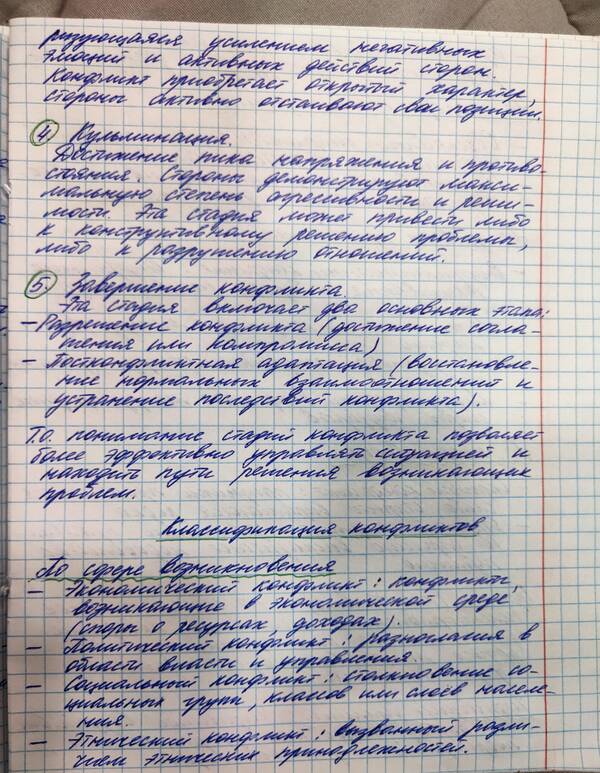 ризующаяся усилением негативных
эмоций и активных действий сторон.
Конфликт приобретает открытый характер,
стороны активно отстаивают свои позиции.
4 Кульминация.
Достижение пика напряжения и противо-
стояния. Стороны демонстрируют макси-
мальную степень агрессивности и реши-
мости. Эта стадия может привести либо
к конструктивному решению проблемы,
либо к разрушению отношений.
5. Завершение конфликта
Эта стадия включает два основных этапа:
– Разрешение конфликта (достижение согла-
шения или компромисса)
– Постконфликтная адаптация (восстановле-
ние нормальных взаимоотношений и
устранение последствий конфликта).
Т.о. понимание стадий конфликта позволяет
более эффективно управлять ситуацией и
находить пути решения возникающих
проблем.
Классификация конфликтов
По сфере возникновения
– Экономический конфликт: конфликты,
возникающие в экономической среде
(споры о ресурсах, доходах).
– Политический конфликт: разногласия в
области власти и управления.
– Социальный конфликт: столкновение со-
циальных групп, классов или слоев населе-
ния.
– Этнический конфликт: вызванный разли-
чием этнических принадлежностей.